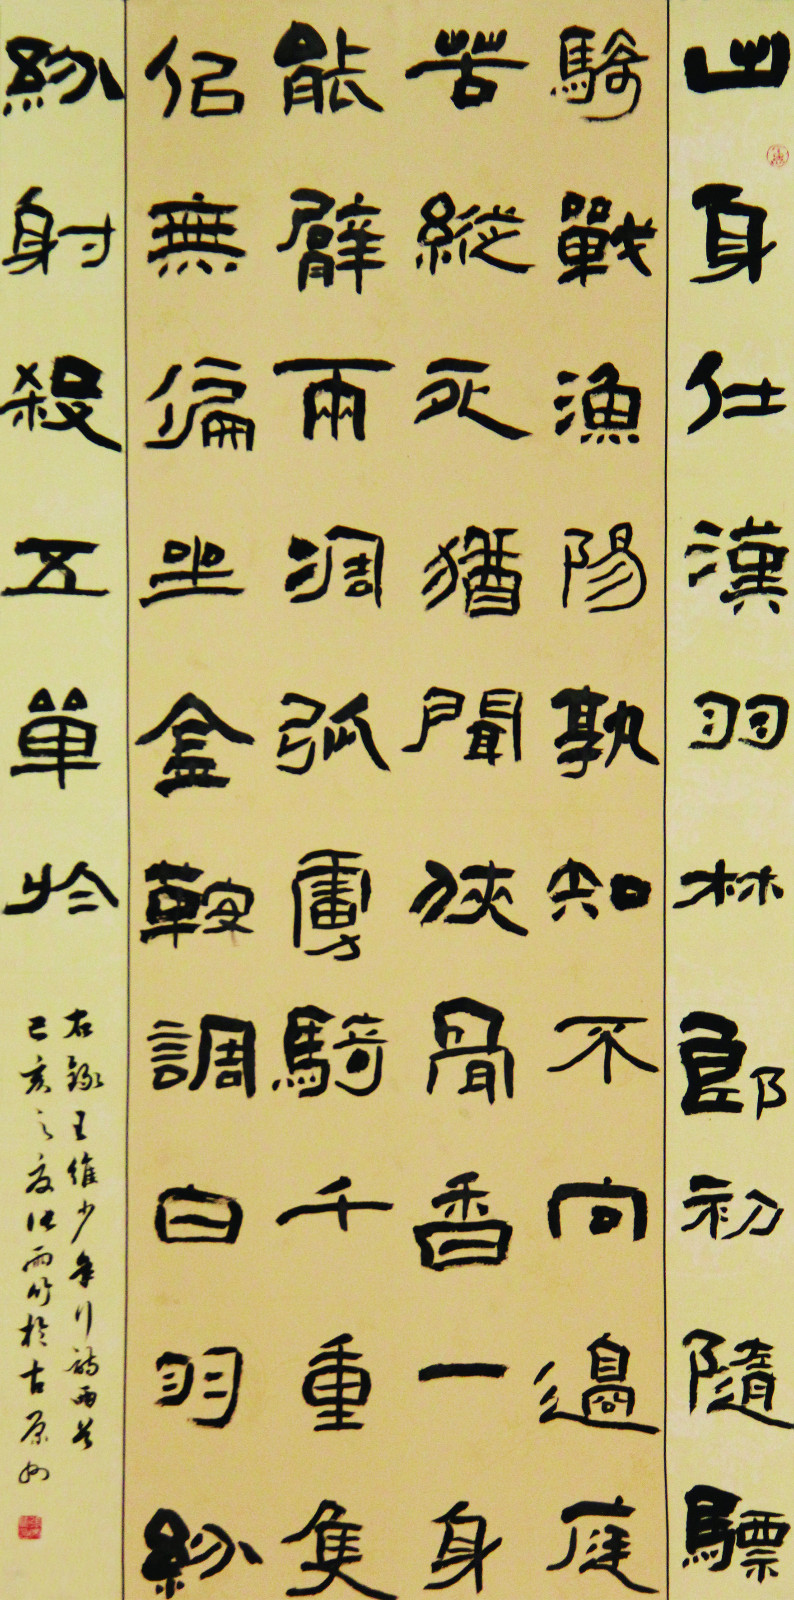 出身仕漢羽林郎初隨驃
騎戰漁陽孰知不向邊庭
苦縱死猶聞俠骨香一身
能臂兩凋弧虜騎千重隻
佀無偏坐金鞍調白羽紛
紛射殺五單於
右錄王維少年行詩兩首
己亥之夏張雨竹於古原州